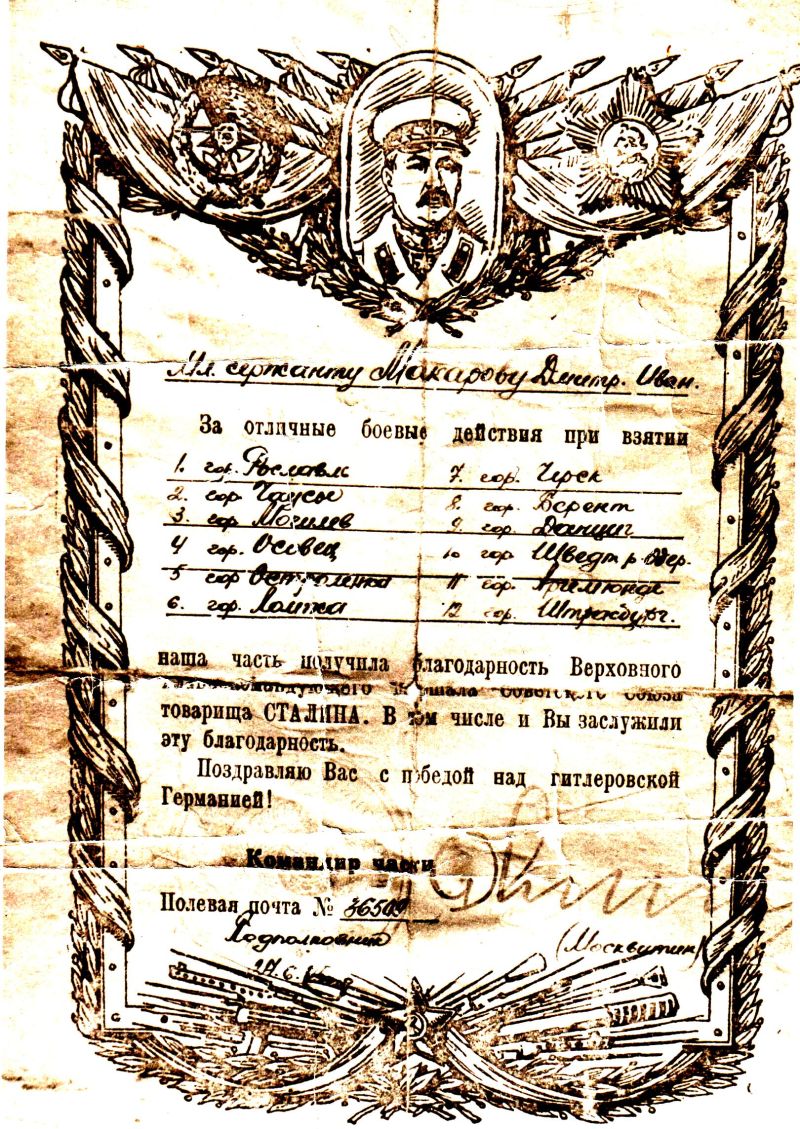 Мл. сержанту Макарову Дмитр. Иван.
За отличные боевые действия при взятии
1. гор. Рославль 7. гор. Черск
2. гор. Чаусы 8. гор. Берент
3. гор. Могилев 9. гор. Данциг
4 гор. Осовец 10 гор. Шведт р. Одер.
5 гор Остроленка 11 гор.
6. гор. Ломжа 12 гор.
наша часть получила благодарность Верховного
Главнокомандующего Маршала Советского Союза
товарища СТАЛИНА. В том числе и Вы заслужили
эту благодарность.
Поздравляю Вас с победой над гитлеровской
Германией!
Командир части
Полевая почта № 36509
Подполковник (Москвитин)